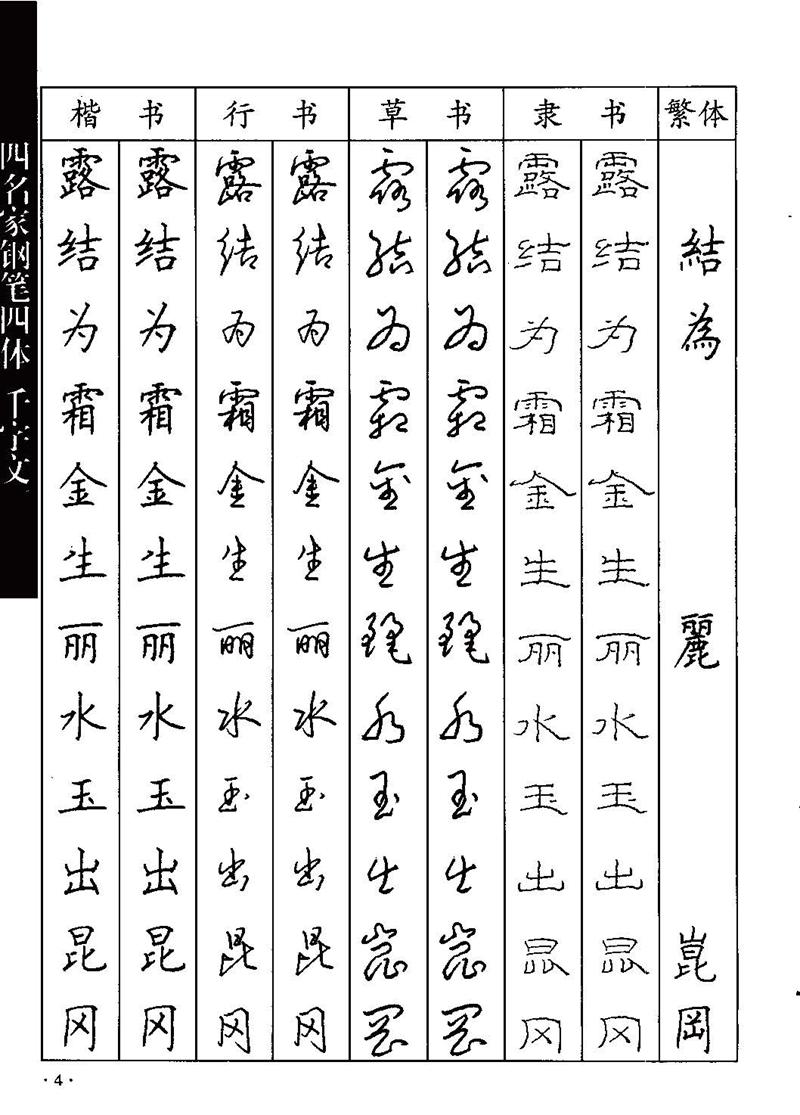 四名家钢笔四体 千字文
楷书 行书 草书 隶书 繁体
露 露 露 露 露 露 露 露
结 结 结 结 结 结 结 结 結
为 为 为 为 为 为 为 为 為
霜 霜 霜 霜 霜 霜 霜 霜
金 金 金 金 金 金 金 金
生 生 生 生 生 生 生 生
丽 丽 丽 丽 麗 麗 丽 丽 麗
水 水 水 水 水 水 水 水
玉 玉 玉 玉 玉 玉 玉 玉
出 出 出 出 出 出 出 出
昆 昆 昆 昆 崑 崑 昆 昆 崑
冈 冈 冈 冈 岡 岡 冈 冈 岡
·4·